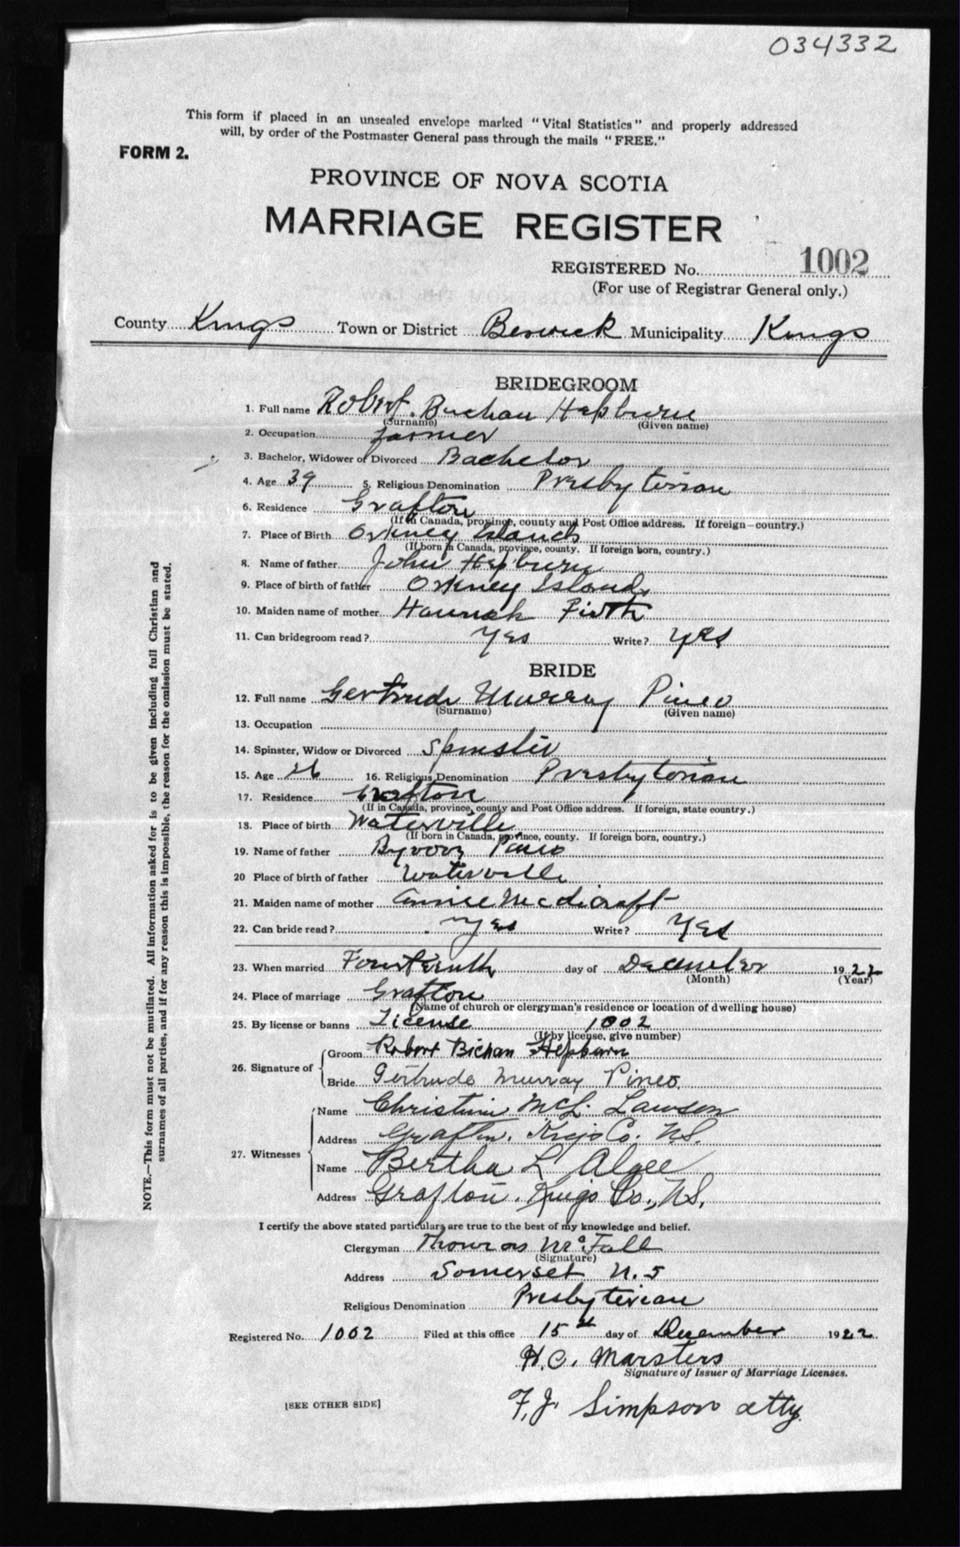 034332
This form if placed in an unsealed envelope marked "Vital Statistics" and properly addressed
will, by order of the Postmaster General pass through the mails "FREE."
FORM 2.
PROVINCE OF NOVA SCOTIA
MARRIAGE REGISTER
REGISTERED No. 1002
(For use of Registrar General only.)
County Kings Town or District Berwick Municipality Kings
BRIDEGROOM
1. Full name Robert Buchan Hepburn
(Surname) (Given name)
2. Occupation Farmer
3. Bachelor, Widower or Divorced Bachelor
4. Age 39 5. Religious Denomination Presbyterian
6. Residence Grafton
(If in Canada, province, county and Post Office address. If foreign—country.)
7. Place of Birth Orkney Islands
(If born in Canada, province, county. If foreign born, country.)
8. Name of father John Hepburn
9. Place of birth of father Orkney Islands
10. Maiden name of mother Hannah Firth
11. Can bridegroom read? Yes Write? Yes
BRIDE
12. Full name Gertrude Murray Pineo
(Surname) (Given name)
13. Occupation
14. Spinster, Widow or Divorced Spinster
15. Age 26 16. Religious Denomination Presbyterian
17. Residence Grafton
(If in Canada, province, county and Post Office address. If foreign, state country.)
18. Place of birth Waterville
(If born in Canada, province, county. If foreign born, country.)
19. Name of father Pineo
20 Place of birth of father Waterville
21. Maiden name of mother Annie
22. Can bride read? Yes Write? Yes
23. When married Fourteenth day of December 1922
(Month) (Year)
24. Place of marriage Grafton
(Name of church or clergyman's residence or location of dwelling house)
25. By license or banns License 1002
(If by license, give number)
26. Signature of
Groom Robert Bichan Hepburn
Bride Gertrude Murray Pineo
27. Witnesses
Name Christina McL. Lawson
Address Grafton. Kings Co. N.S.
Name Bertha L Algee
Address Grafton. Kings Co., N.S.
I certify the above stated particulars are true to the best of my knowledge and belief.
Clergyman Thomas McFall
(Signature)
Address Somerset N.S
Religious Denomination Presbyterian
Registered No. 1002 Filed at this office 15th day of December 1922
H.C. Marsters
Signature of Issuer of Marriage Licenses.
[SEE OTHER SIDE]
F.J. Simpson atty
NOTE.—This form must not be mutilated. All information asked for is to be given including full Christian and
surnames of all parties, and if for any reason this is impossible, the reason for the omission must be stated.